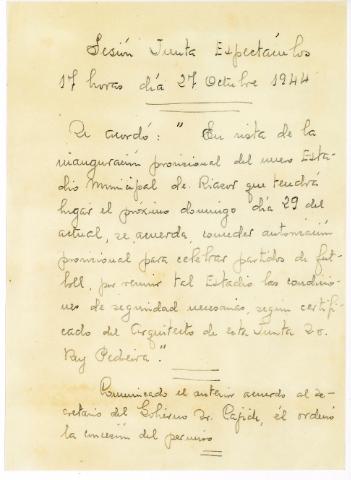 Sesión Junta Espectáculos
17 horas día 27 Octubre 1944
Se acordó: " En vista de la
inauguración provisional del nuevo Esta-
dio Municipal de Riazor que tendrá
lugar el próximo domingo día 29 del
actual, se acuerda conceder autorización
provisional para celebrar partidos de fut-
boll, por reunir tal Estadio las condicio-
nes de seguridad necesarias, según certifi-
cado del Arquitecto de esta Junta Sr.
Rey Pedreira".
Comunicado el anterior acuerdo al Se-
cretario del Gobierno Sr. Cajide, él ordenó
la concesión del permiso